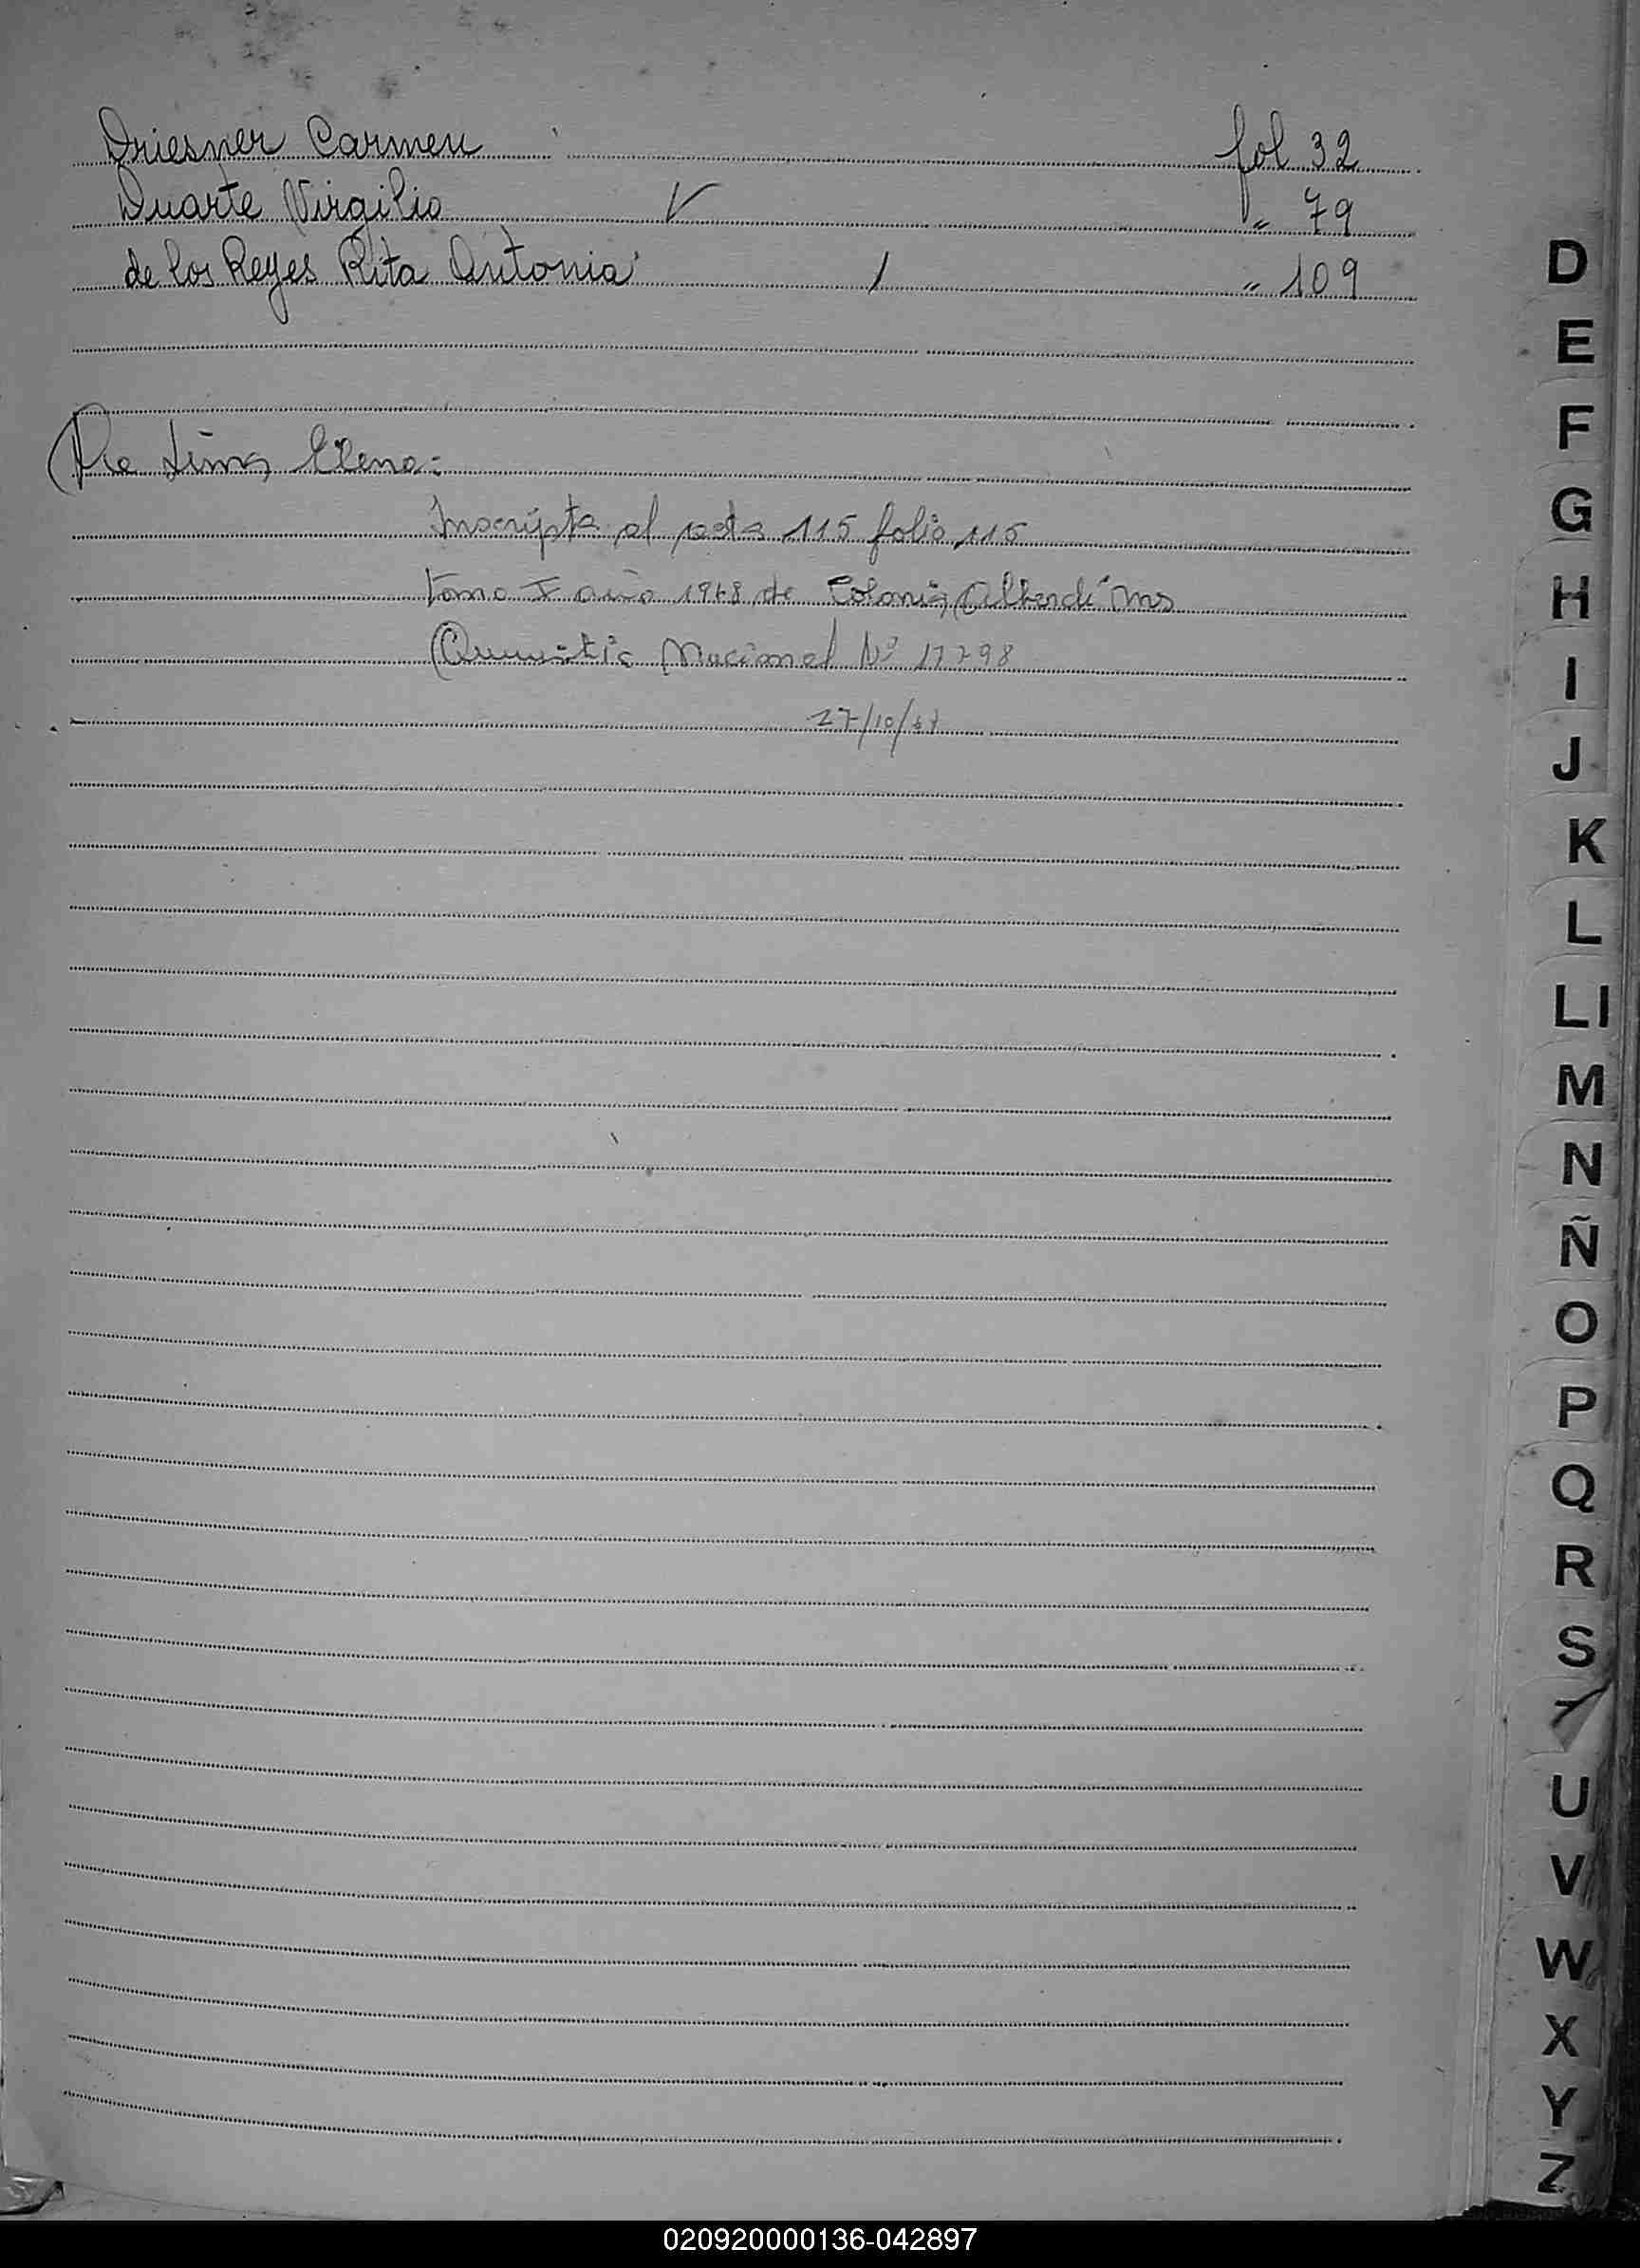 Driesner Carmen fol 32
Duarte Virgilio V " 79
de los Reyes Rita Antonia / " 109
Da Lima Elena:
Inscripta al acta 115 folio 115
tomo I año 1968 de Colonia Alberdi Mns
Amnistia Nacional Nº 17798
27/10/
D
E
F
G
H
I
J
K
L
Ll
M
N
Ñ
O
P
Q
R
S
T
U
V
W
X
Y
Z
020920000136-042897